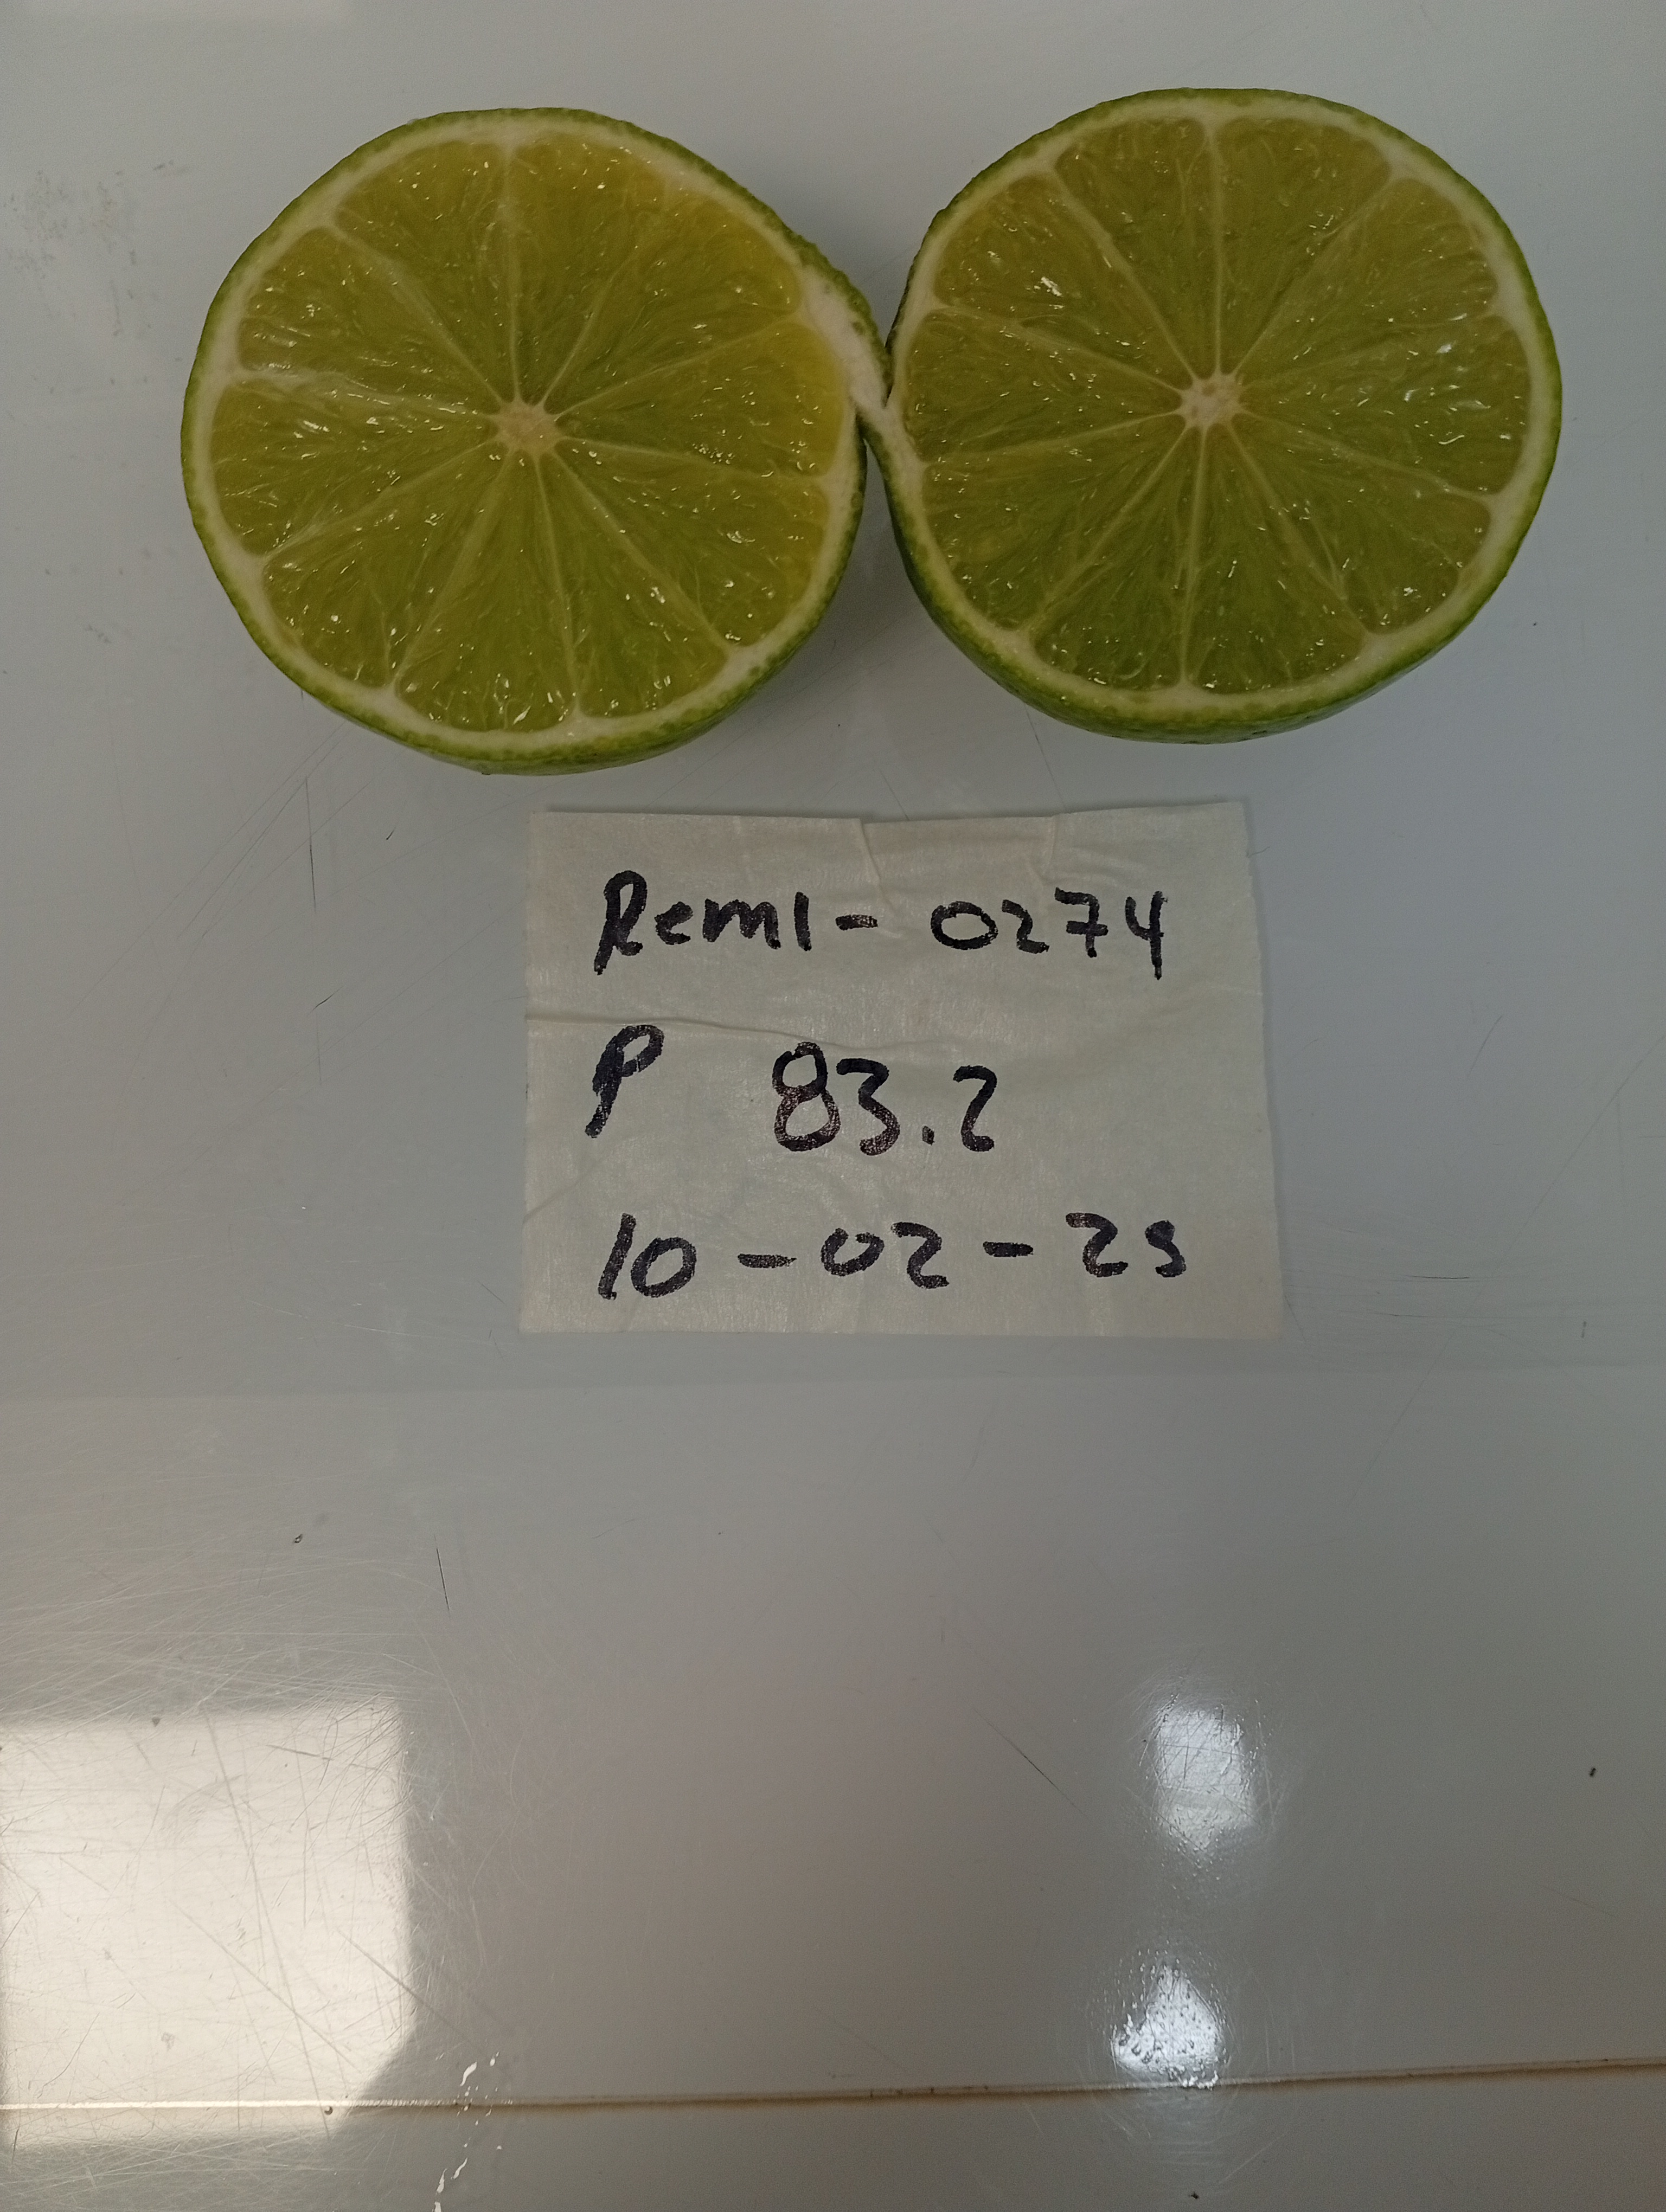 Reml- 0274
P 83.2
10-02-25